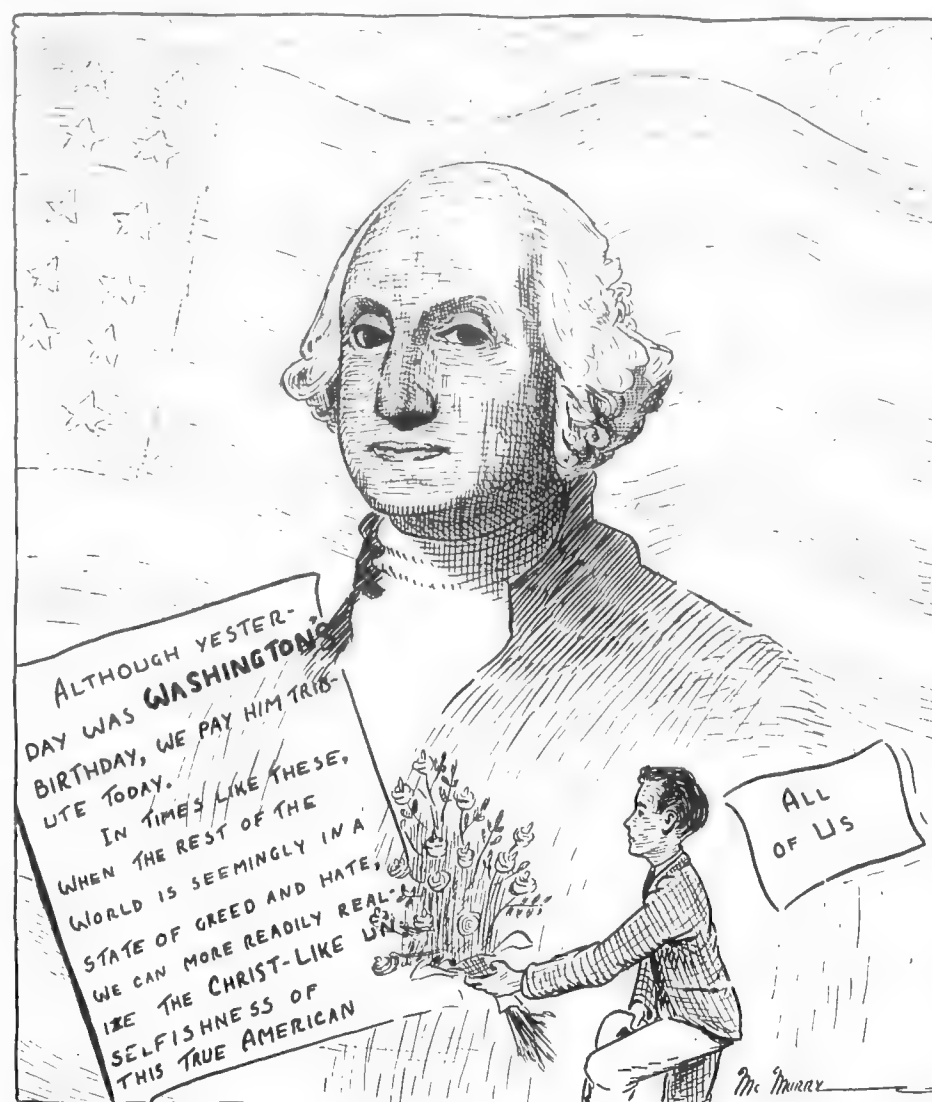 ALTHOUGH YESTER-
DAY WAS WASHINGTON'S
BIRTHDAY, WE PAY HIM TRIB-
UTE TODAY.
IN TIMES LIKE THESE,
WHEN THE REST OF THE
WORLD IS SEEMINGLY IN A
STATE OF GREED AND HATE,
WE CAN MORE READILY REAL-
IZE THE CHRIST-LIKE UN-
SELFISHNESS OF
THIS TRUE AMERICAN
ALL
OF US
MC MURRY